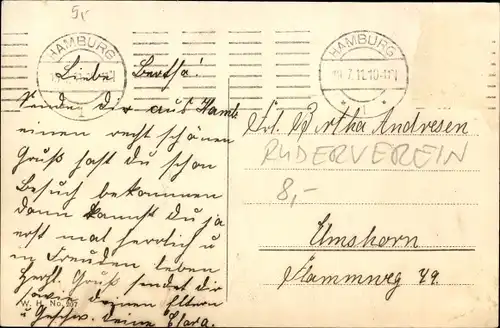 5,-
HAMBURG
HAMBURG
19.7.11.10-11V
1
Liebe Bertha!
Sende dir aus Hamb
einen recht schönen
Gruß hast du schon
Besuch bekommen
dann kannst du ja
erst mal herrlich u
in Freuden leben
Herzl. Gruß sendet dir
sowie deinen Eltern
u Geschw. deine Clara.
W. H. No. 207
Frl. Bertha Andresen
RUDERVEREIN
8,-
Elmshorn
Flammweg 49.